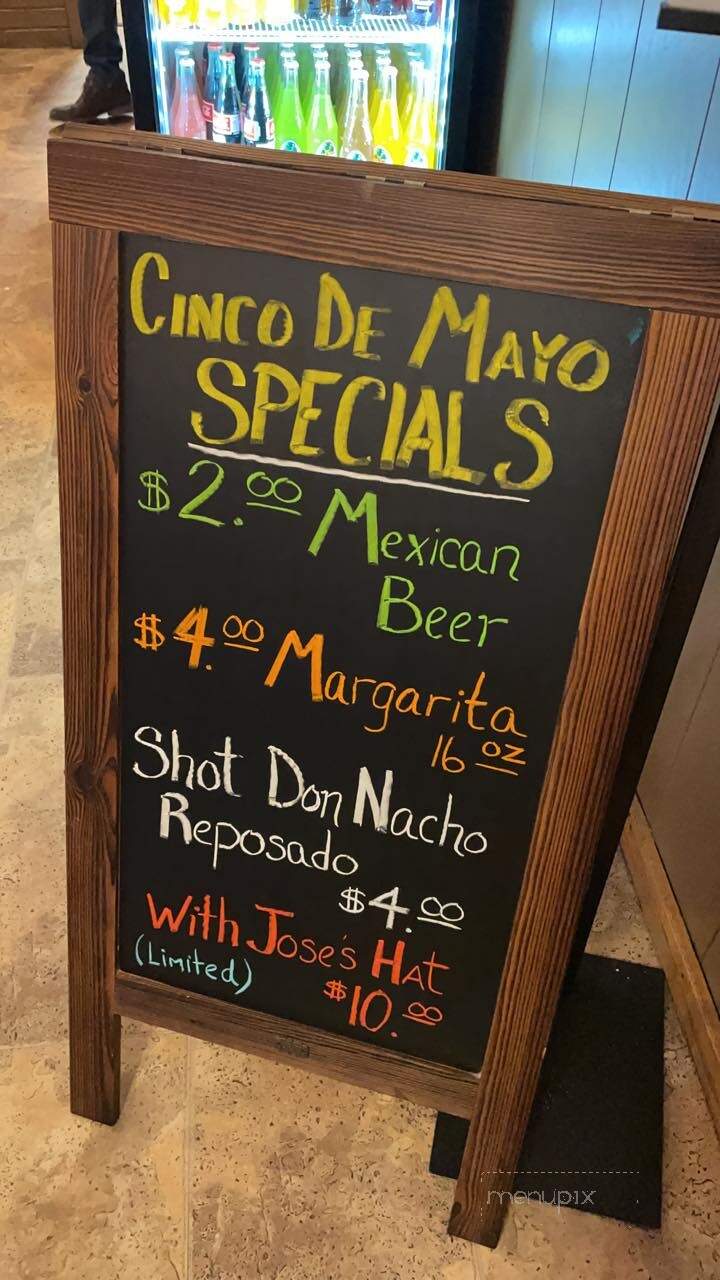 Cinco De Mayo
SPECIALS
$2.00 Mexican
Beer
$4.00 Margarita
16 oz
Shot Don Nacho
Reposado
$4.00
With Jose's Hat
(Limited) $10.00
menupix